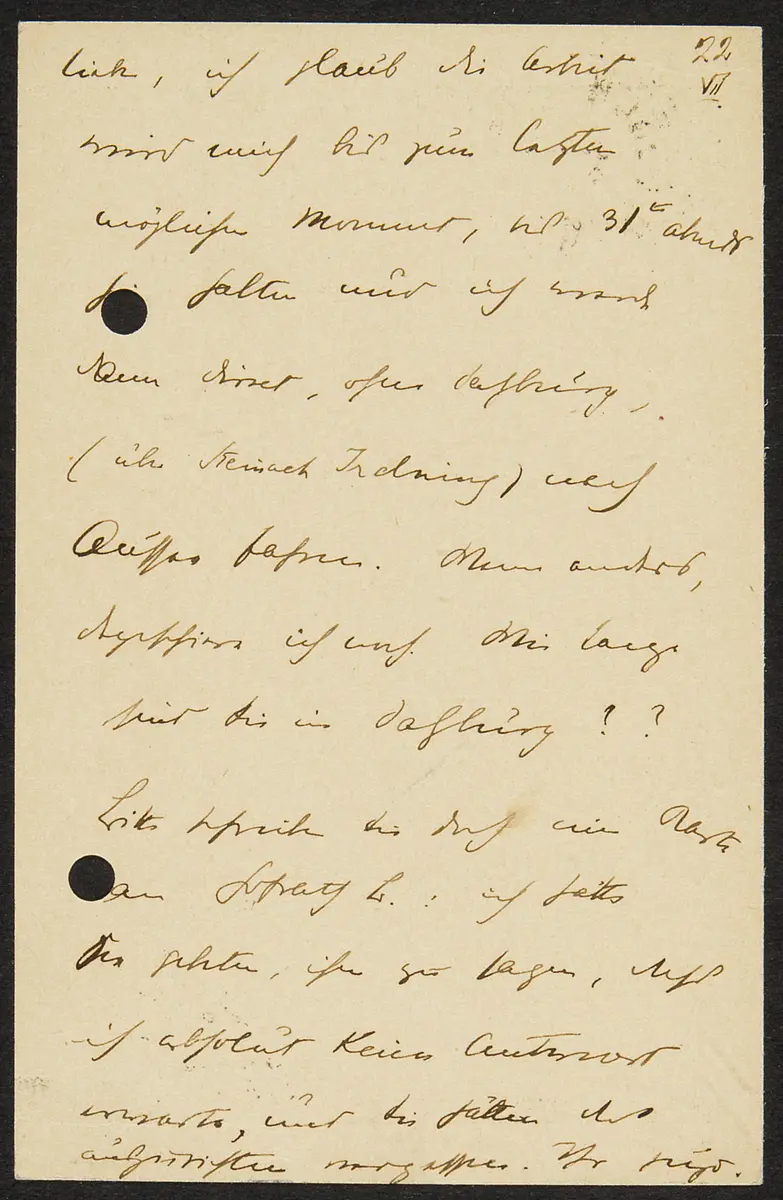 22
VII.
lich, ich glaub die Arbeit
wird mich bis zum letzten
möglichen Moment, bis 31ten abends
hier halten und ich werde
dann direct, ohne Salzburg,
(über Steinach Irdning) nach
Aussee fahren. Wenn anders,
depeschiere ich noch. Wie lange
sind Sie in Salzburg??
Bitte schreiben Sie doch eine Karte
an Hofrath B.: ich hätte
Sie gebeten, ihm zu sagen, dass
ich absolut keine Antwort
erwarte, und Sie hätten das
auszurichten vergessen. Ihr Hugo.